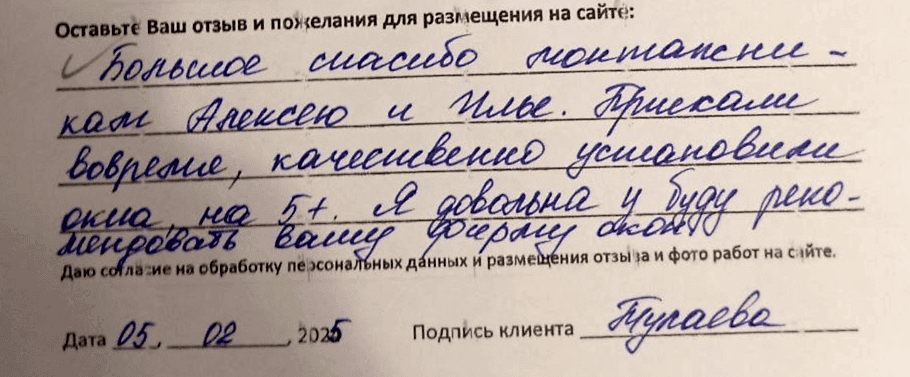 Оставьте Ваш отзыв и пожелания для размещения на сайте:
Большое спасибо монтажни-
кам Алексею и Илье. Приехали
вовремя, качественно установили
окна, на 5+. Я довольна и буду реко-
мендовать вашу фирму окон.
Даю согласие на обработку персональных данных и размещения отзыва и фото работ на сайте.
Дата 05. 02 , 2025 Подпись клиента Тулаева